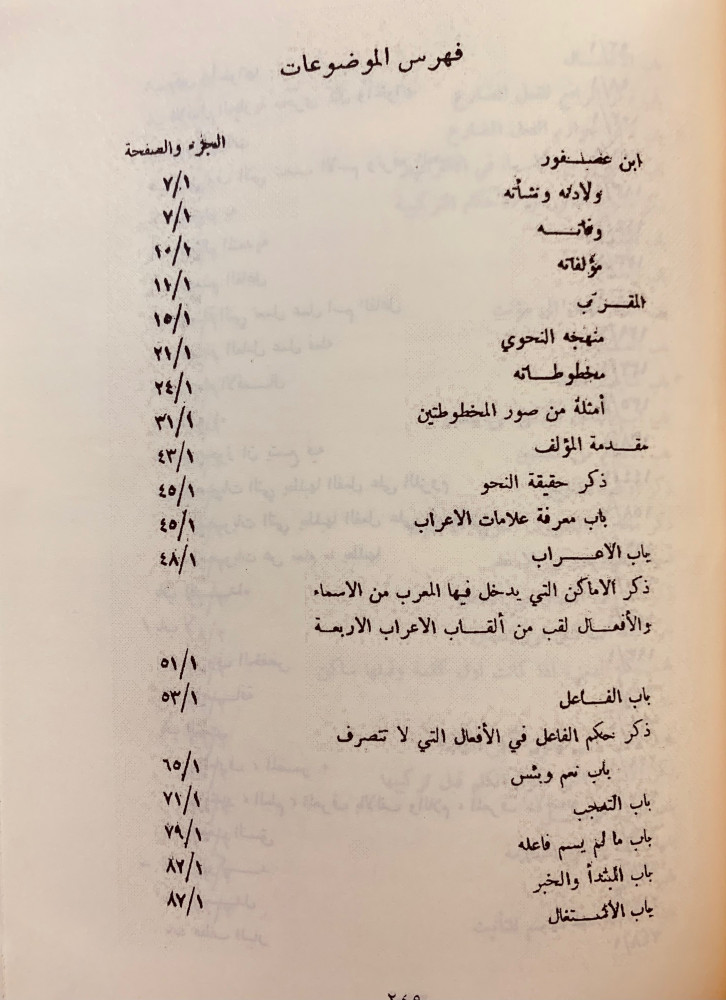 فهرس الموضوعات
الجزء والصفحة
ابن عصفور ٧/١
ولادته ونشأته ٧/١
وفاته ١٠/١
مؤلفاته ١١/١
المقرّب ١٥/١
منهجه النحوي ٢١/١
مخطوطاته ٢٤/١
أمثلة من صور المخطوطتين ٣١/١
مقدمة المؤلف ٤٣/١
ذكر حقيقة النحو ٤٥/١
باب معرفة علامات الاعراب ٤٥/١
باب الاعراب ٤٨/١
ذكر الاماكن التي يدخل فيها المعرب من الاسماء
والأفعال لقب من ألقاب الاعراب الاربعة
٥١/١
باب الفاعل ٥٣/١
ذكر حكم الفاعل في الأفعال التي لا تتصرف
باب نعم وبئس ٦٥/١
باب التعجب ٧١/١
باب ما لم يسم فاعله ٧٩/١
باب المبتدأ والخبر ٨٢/١
باب الاشتغال ٨٧/١